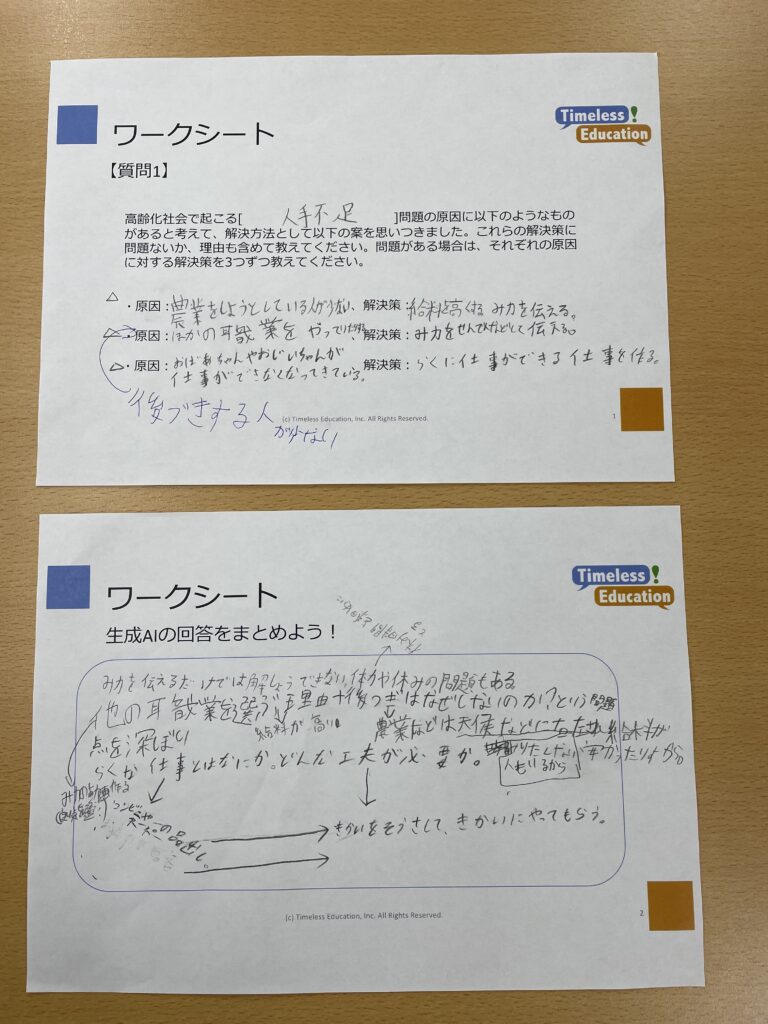 ワークシート
Timeless!
Education
【質問1】
高齢化社会で起こる[ 人手不足 ]問題の原因に以下のようなもの
があると考えて、解決方法として以下の案を思いつきました。これらの解決策に
問題ないか、理由も含めて教えてください。問題がある場合は、それぞれの原因
に対する解決策を3つずつ教えてください。
△ ・原因:農業をしようとしている人が少ない、解決策:給料を高くする みカを伝える。
△ ・原因:ほかの職業をやって 解決策:みカをせんでんなどして伝える。
△ ・原因:おばあちゃんやおじいちゃんが 解決策:らくに仕事ができる仕事を作る。
仕事ができなくなってきている。
後づきする人
が少ない
(c) Timeless Education, Inc. All Rights Reserved.
1
ワークシート
Timeless!
Education
生成AIの回答をまとめよう!
みカを伝えるだけでは解しょうできない。体力や休みの問題もある
他の職業を選ぶ理由+後つぎはなぜしないのか?という問題
点を深ぼり
給料が高い
農業などは天候などに 給料が
安かったり
するから。
らくな仕事とはなにか。どんな工夫が必要か。
人もいるから
コンビニや
スーパーの品出し。
きかいをそうさして、きかいにやってもらう。
(c) Timeless Education, Inc. All Rights Reserved.
2